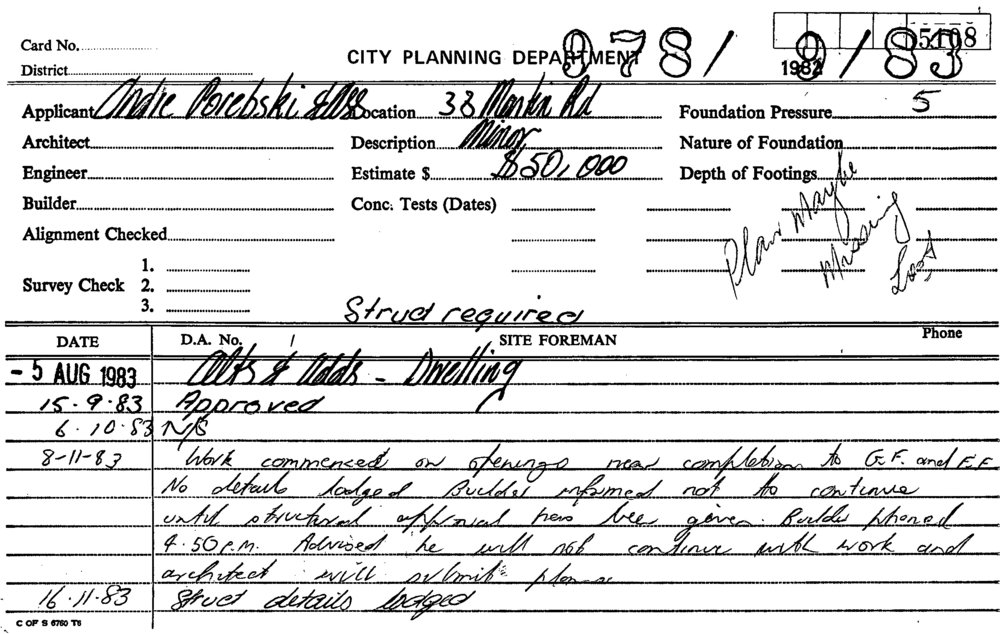 5108
Card No.
CITY PLANNING DEPARTMENT 978/ 9/83
1982
District
Applicant Andre Porebski & Ass Location 38 Manian Rd Foundation Pressure 5
Architect Description Minor Nature of Foundation
Engineer Estimate $ $50,000 Depth of Footings
Builder Conc. Tests (Dates)
Alignment Checked
Plan Maybe
Missing
Lost
1.
Survey Check 2.
3.
Struct required
DATE D.A. No. / SITE FOREMAN Phone
- 5 AUG 1983 Alts & Adds - Dwelling
15.9.83 Approved
6.10.83 N/S
8-11-83 Work commenced on openings near completion to G.F. and F.F.
No details lodged Builder informed not to continue
until structural approval has been given. Builder phoned
4.50 p.m. Advised he will not continue with work and
architect will submit plans
16.11.83 Struct details lodged
C OF S 6760 T6